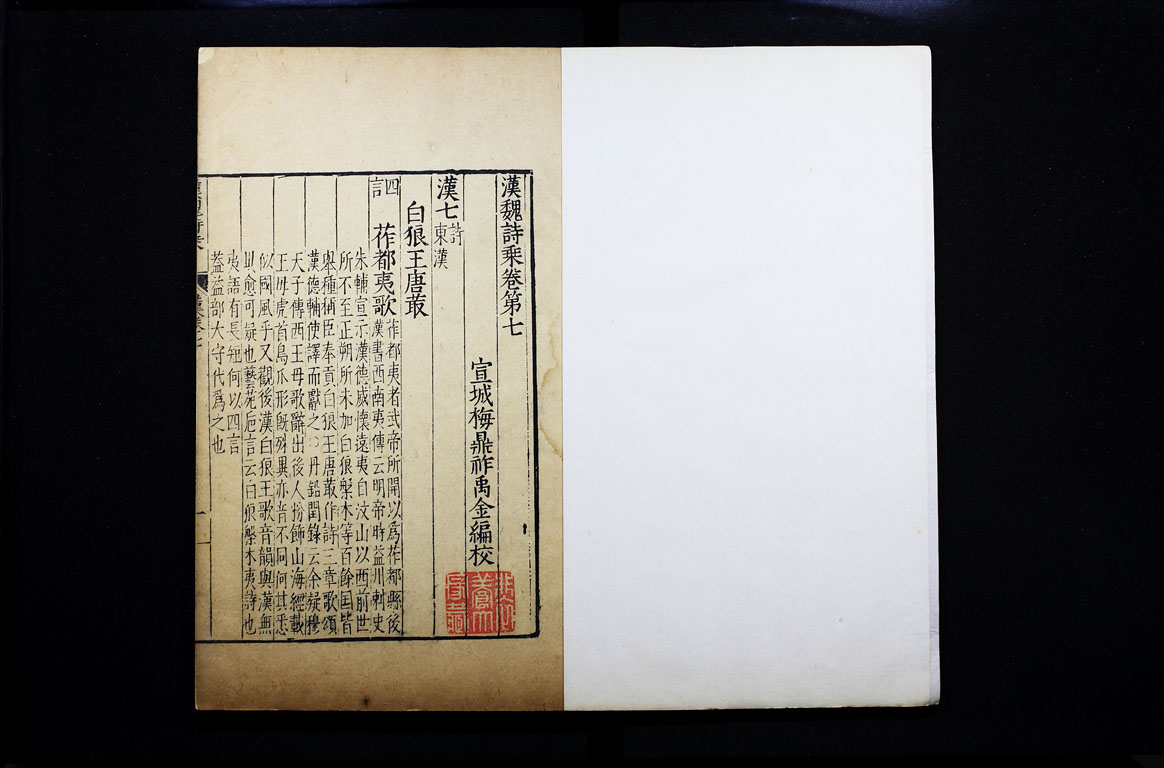 漢魏詩乘卷第七
宣城梅鼎祚禹金編校
漢七 詩 東漢
白狼王唐菆
四言 莋都夷歌 莋都夷者武帝所開以爲莋都縣後
漢書西南夷傳云明帝時益川刺史
朱輔宣示漢德威懷遠夷自汶山以西前世
所不至正朔所未加白狼槃木等百餘国皆
舉種稱臣奉貢白狼王唐菆作詩三章歌頌
漢德輔使譯而獻之○丹鉛閏錄云余疑穆
天子傳西王母歌辭出後人扮飾山海經載
王母虎首鳥爪形旣殊異亦音不同何其悉
似國風乎又觀後漢白狼王歌音韻與漢無
異愈可疑也藝苑巵言云白狼槃木夷詩也
夷語有長短何以四言
蓋益部大守代爲之也